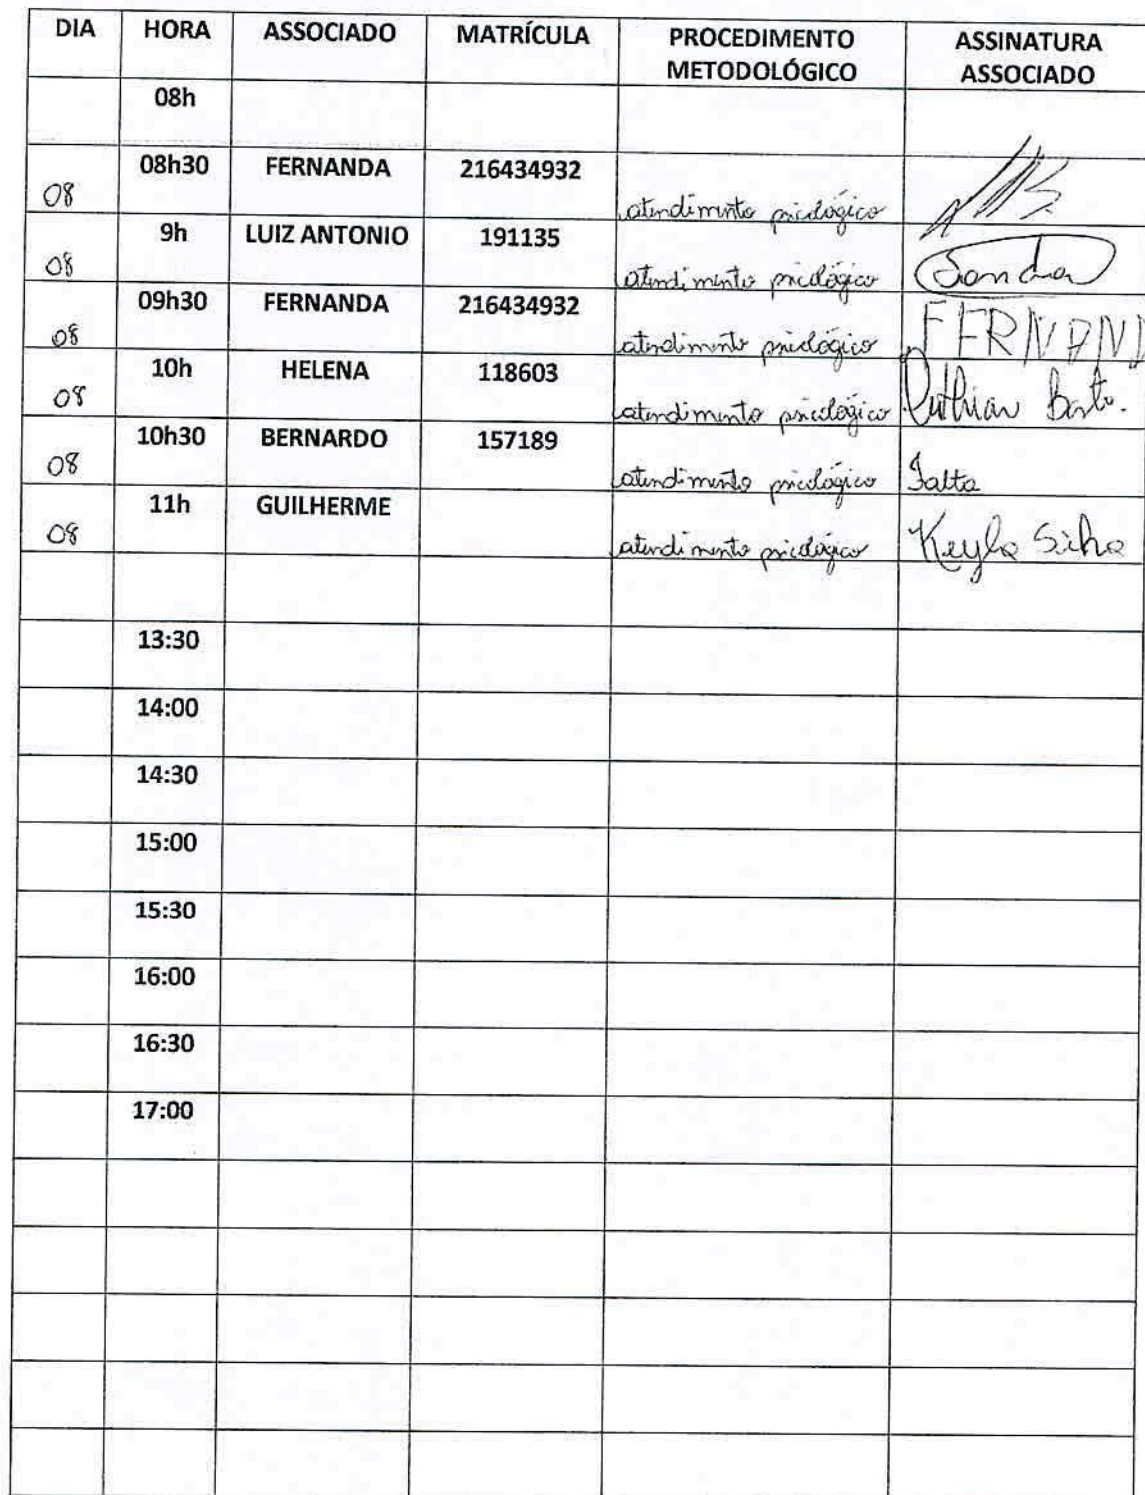 DIA HORA ASSOCIADO MATRÍCULA PROCEDIMENTO METODOLÓGICO ASSINATURA ASSOCIADO
08h
08 08h30 FERNANDA 216434932 atendimento psicológico
08 9h LUIZ ANTONIO 191135 atendimento psicológico Sandra
08 09h30 FERNANDA 216434932 atendimento psicológico FERNAND
08 10h HELENA 118603 atendimento psicológico
08 10h30 BERNARDO 157189 atendimento psicológico Falta
08 11h GUILHERME atendimento psicológico Keyla Silva
13:30
14:00
14:30
15:00
15:30
16:00
16:30
17:00